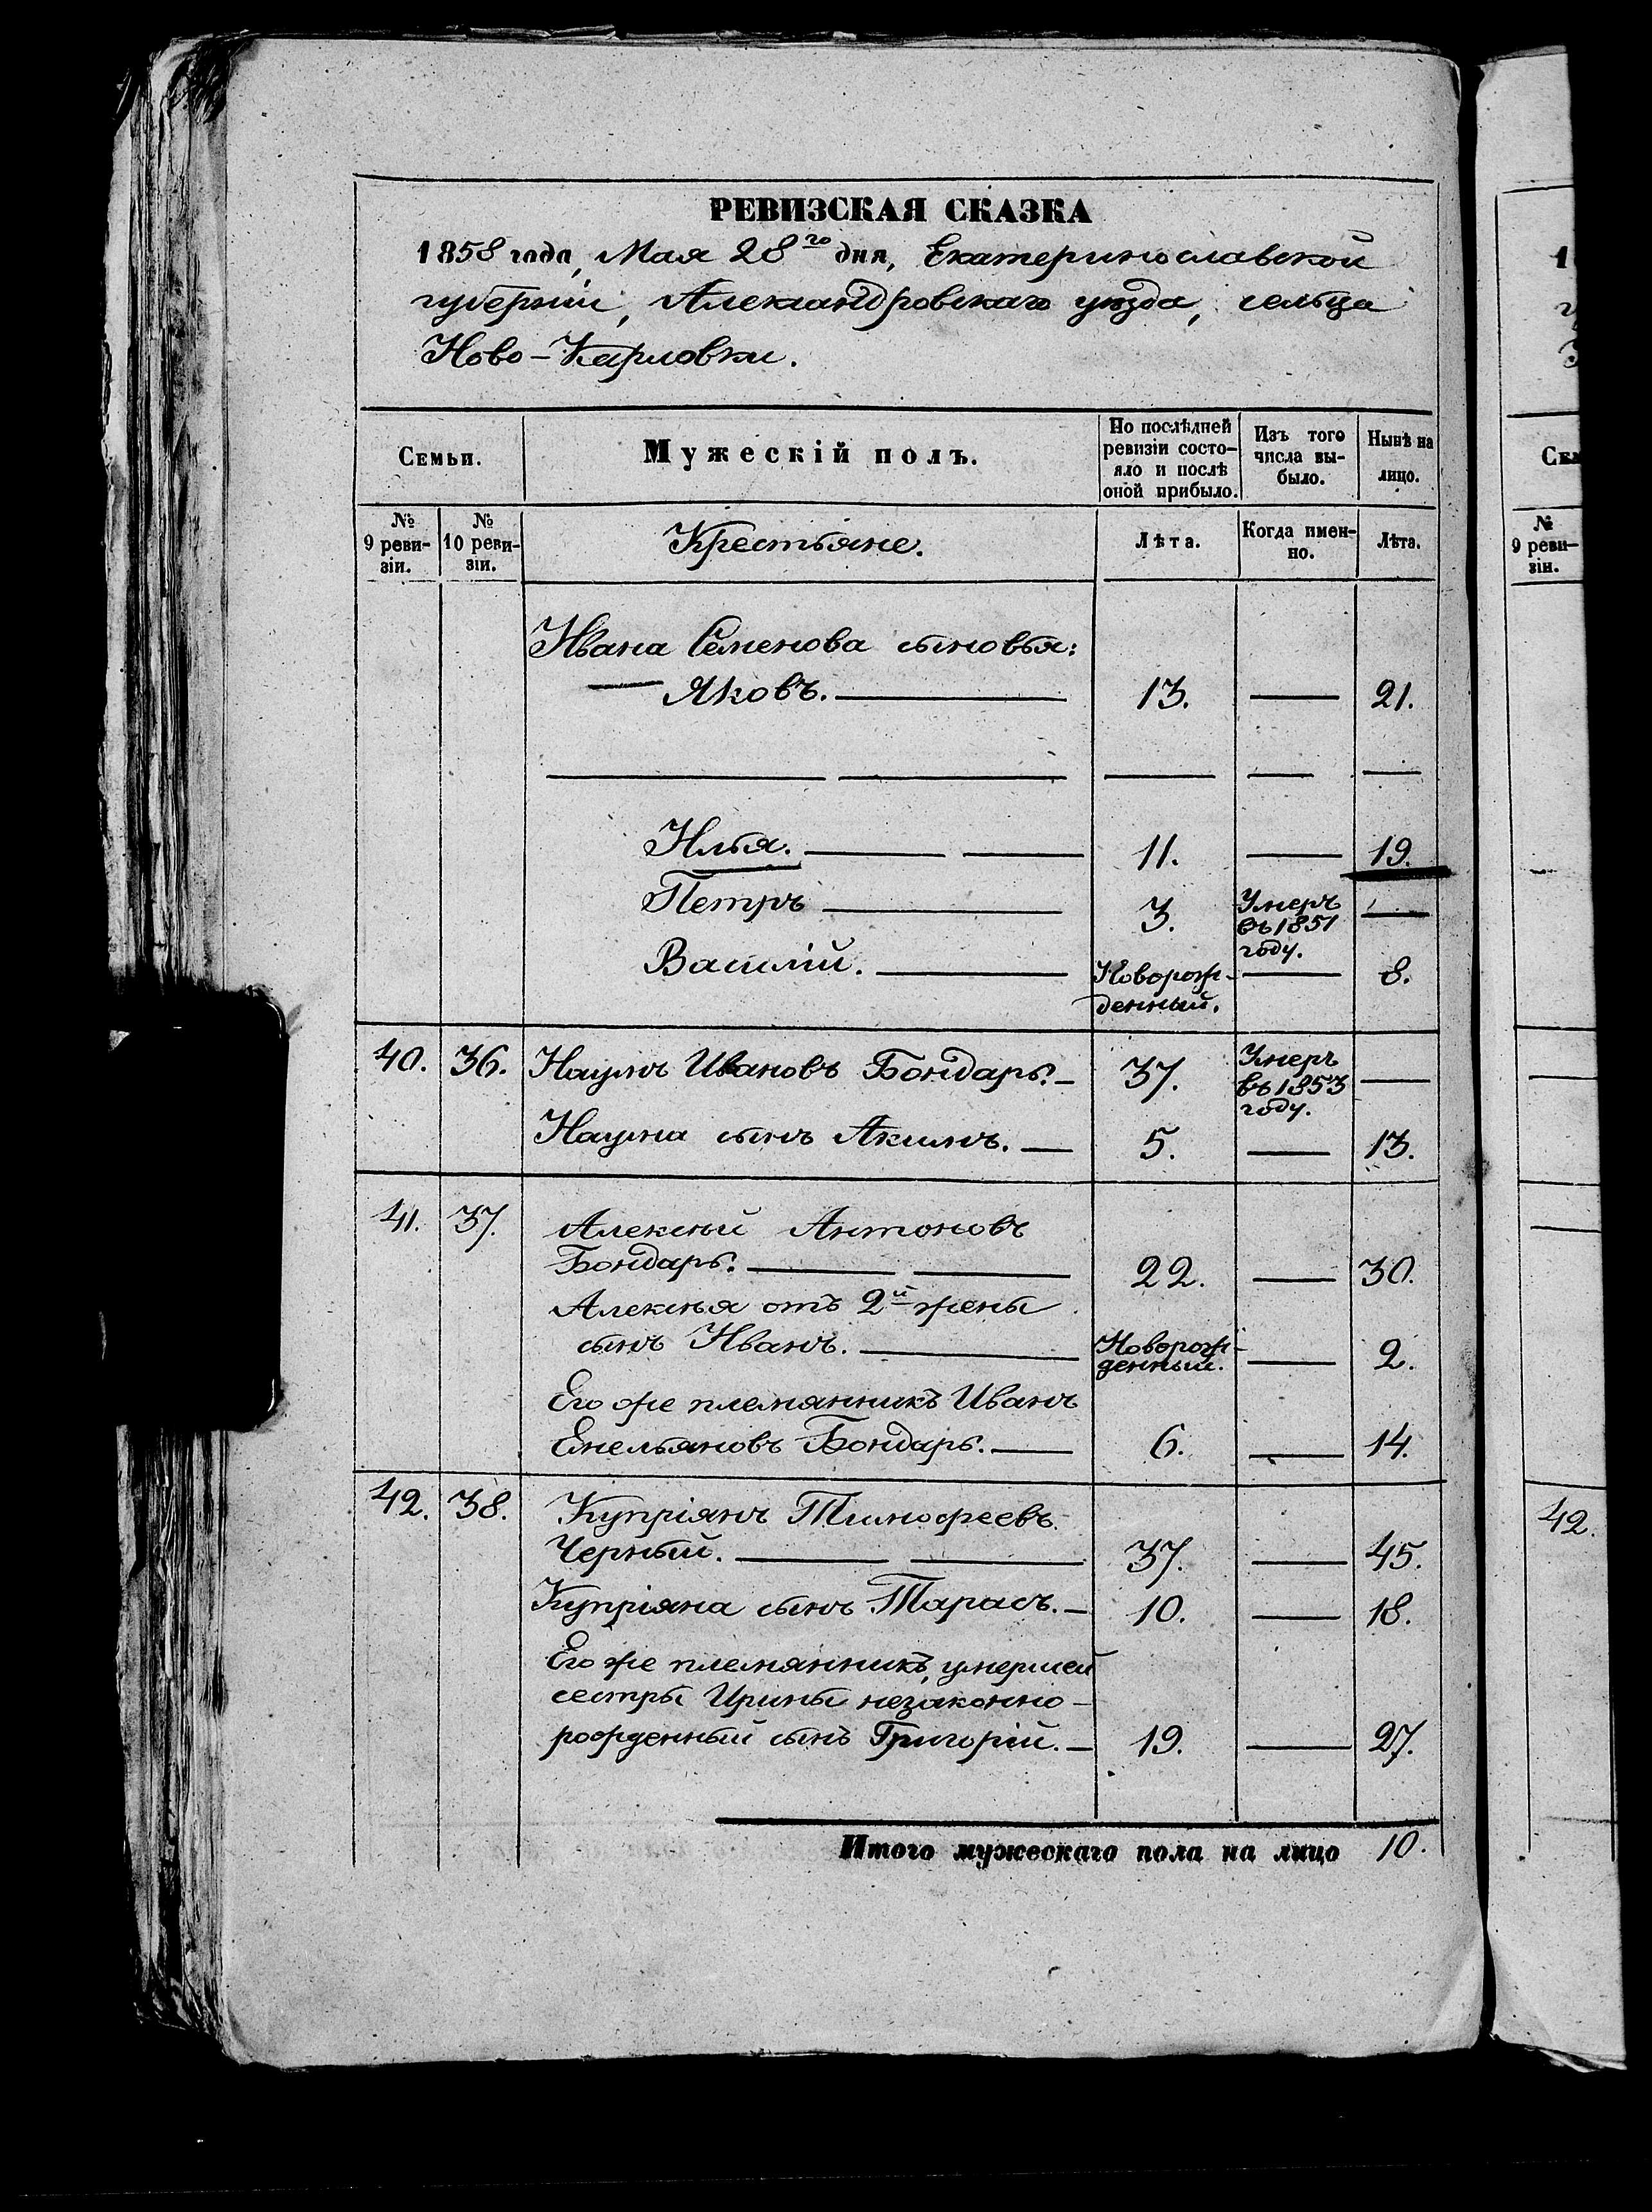 РЕВИЗСКАЯ СКАЗКА
1858 года, Мая 28го дня, Екатеринославской
губерніи, Александровскаго уѣзда, сельца
Ново-Карловки.
Семьи.
Мужескій полъ.
По послѣдней
ревизіи состо-
яло и послѣ
оной прибыло.
Изъ того
числа вы-
было.
Нынѣ на
лицо.
№
9 реви-
зіи.
№
10 реви-
зіи.
Крестьяне.
Лѣта.
Когда имен-
но.
Лѣта.
Ивана Семенова сыновья:
— Яковъ. — 13. — 21.
Илья. — 11. — 19.
Петръ — 3. Умеръ —
въ 1851
году.
Василій. — Новорож- — 8.
денный.
40. 36. Наумъ Ивановъ Бондарь. — 37. Умеръ —
въ 1853
году.
Наума сынъ Акимъ. — 5. — 13.
41. 37. Алексѣй Антоновъ
Бондарь. — 22. — 30.
Алексѣя отъ 2й жены
сынъ Иванъ. — Новорож- — 2.
денный.
Его же племянникъ Иванъ
Емельяновъ Бондарь. — 6. — 14.
42. 38. Купріянъ Тимофеевъ
Черный. — 37. — 45.
Купріяна сынъ Тарасъ. — 10. — 18.
Его же племянникъ, умершей
сестры Ирины незаконно-
рожденный сынъ Григорій. — 19. — 27.
Итого мужескаго пола на лицо 10.
№
9 реви-
зіи.
42.